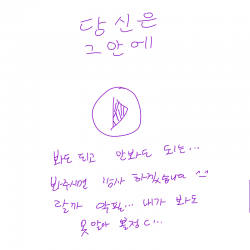 당신은
그안에
봐도 되고 안봐도 되는...
봐주시면 감사 하겠습니다 ^^
랄까 악필... 내가 봐도
못알아